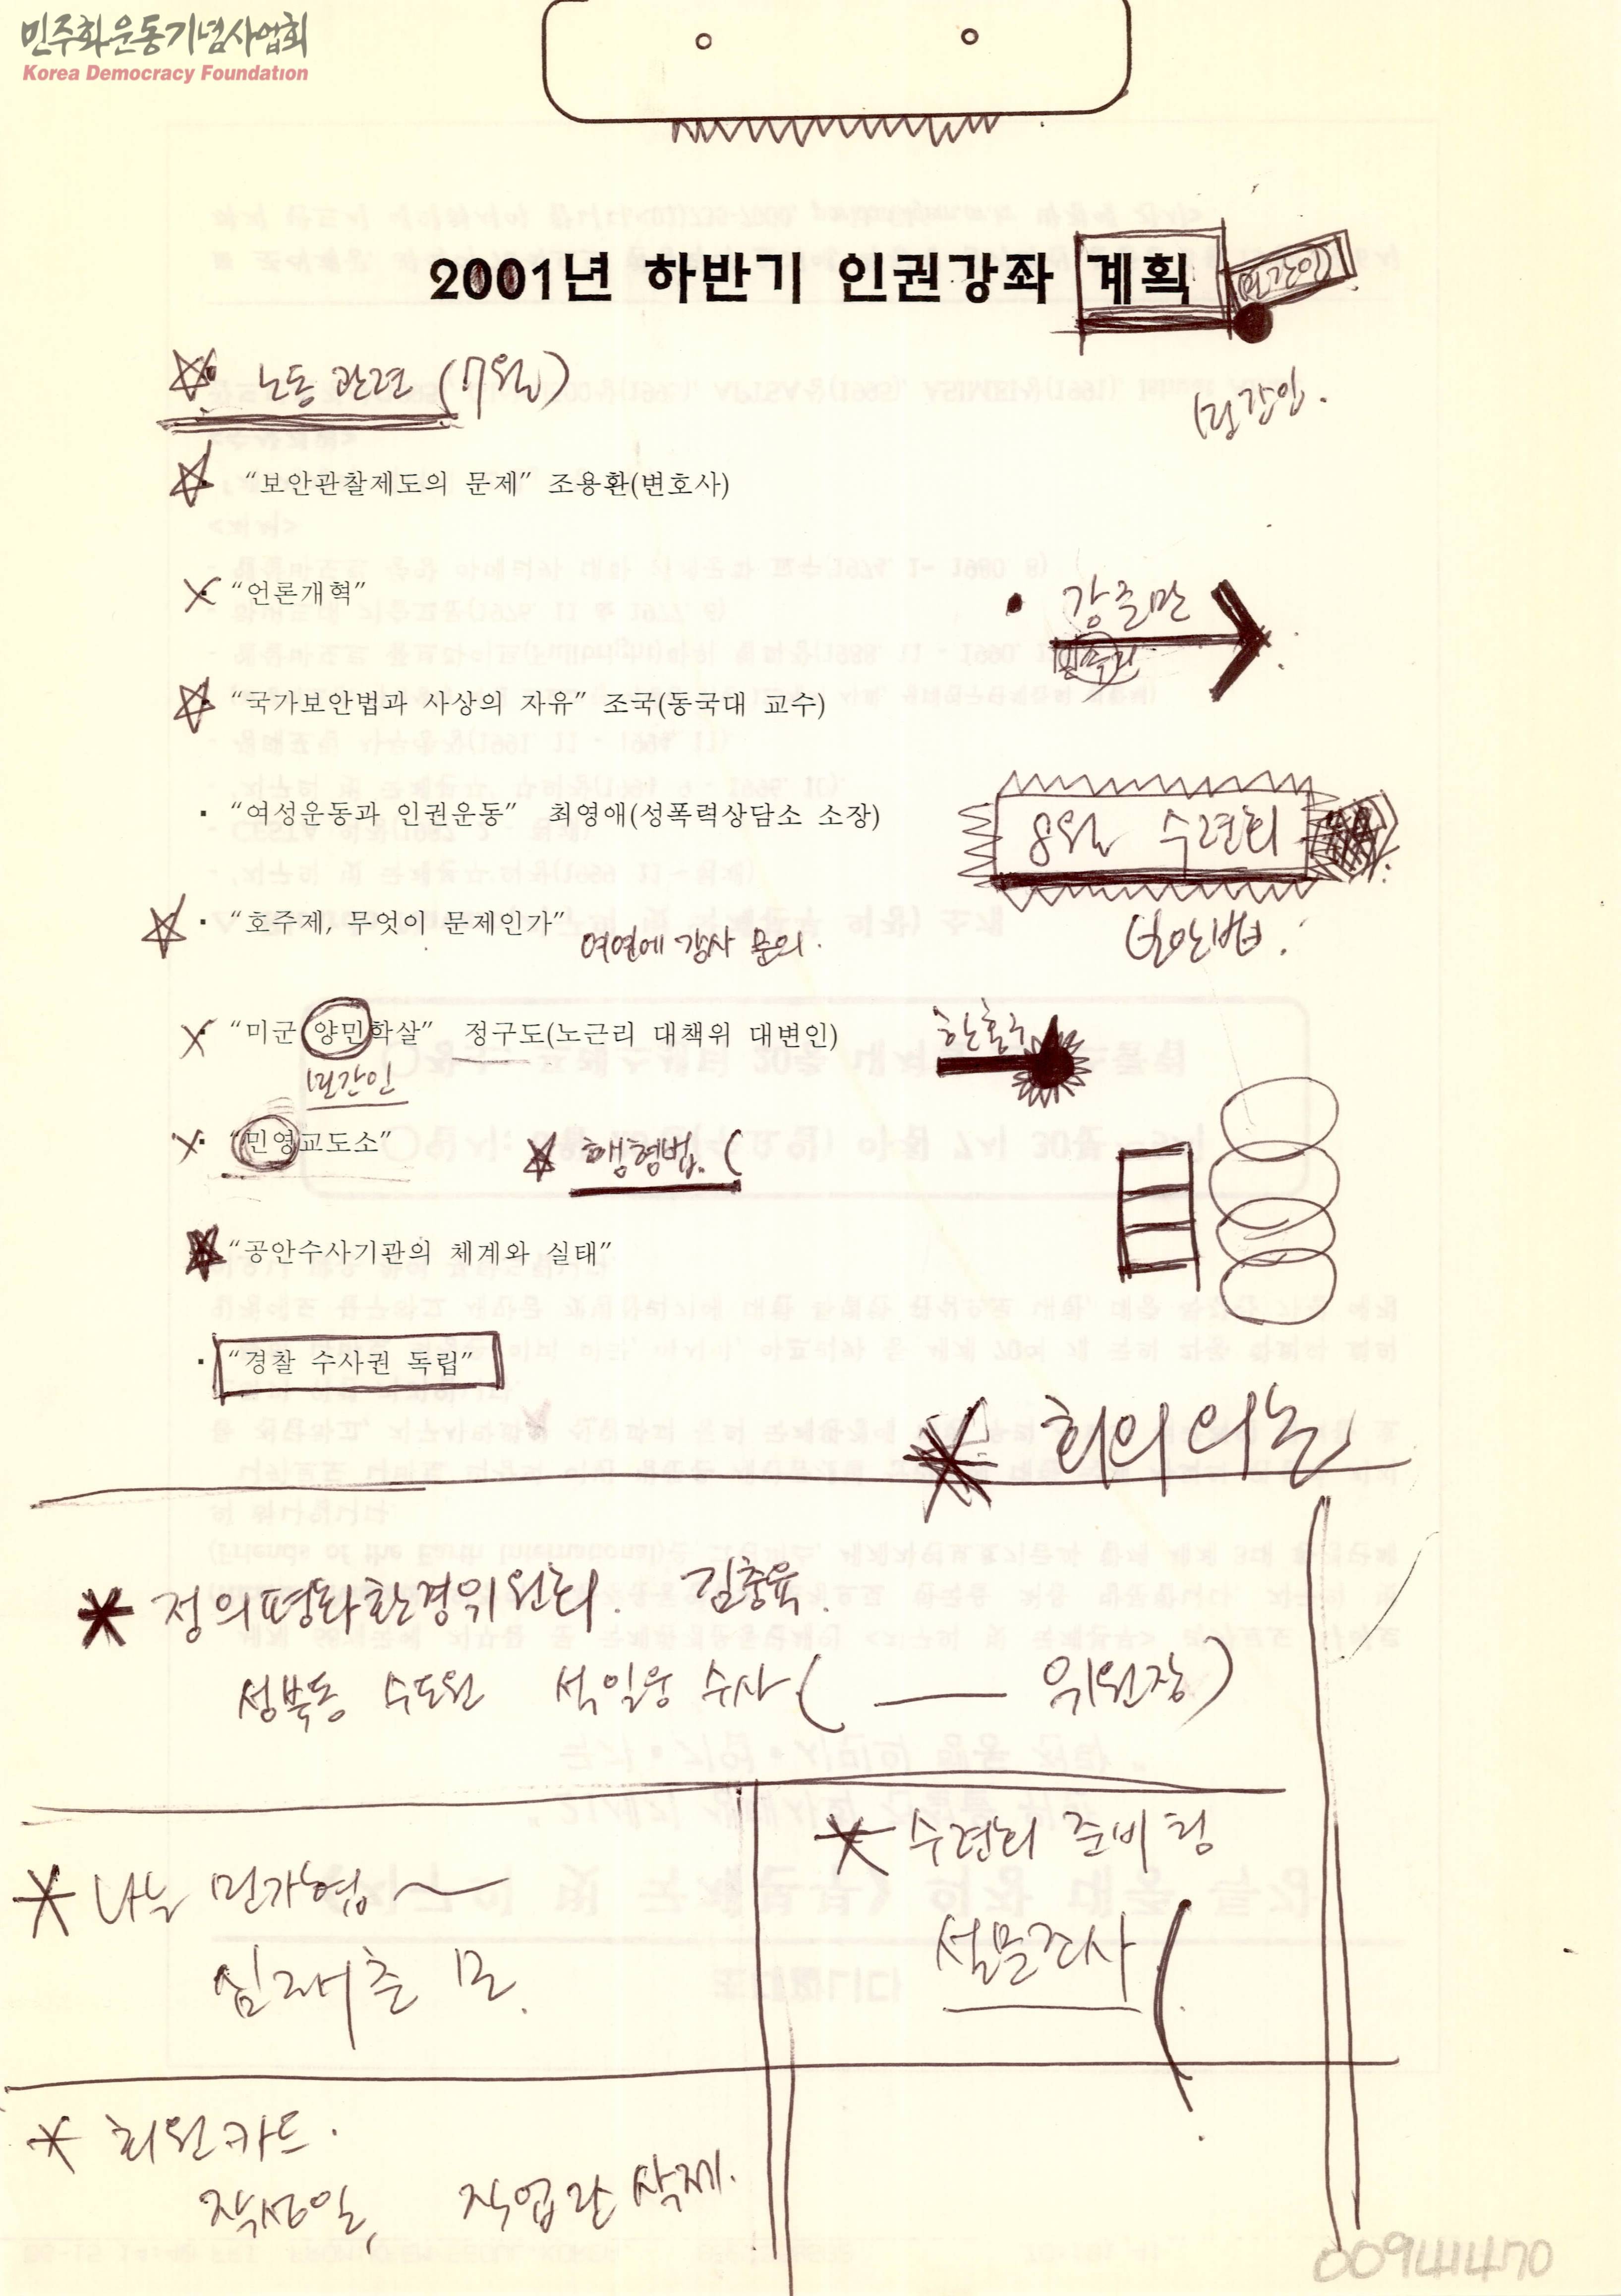 민주화운동기념사업회
Korea Democracy Foundation
2001년 하반기 인권강좌 계획
민간인
노동관련 (7월)
민간인.
· “보안관찰제도의 문제” 조용환(변호사)
· “언론개혁”
· 강준만
민족과
· “국가보안법과 사상의 자유” 조국(동국대 교수)
· “여성운동과 인권운동” 최영애(성폭력상담소 소장)
8월 수련회
· “호주제, 무엇이 문제인가”
여연에 강사 문의.
보안법.
· “미군 양민학살” 정구도(노근리 대책위 대변인)
한홍구
민간인
· “민영교도소”
행형법. (
· “공안수사기관의 체계와 실태”
· “경찰 수사권 독립”
회의 의논
* 정의평화환경위원회. 김충육.
성북동 수도원 석일웅 수사 ( 위원장)
* 수련회 준비팀
* 나눔 민가협
설문조사 (
* 회원카드.
작성일, 직업란 삭제.
00941470